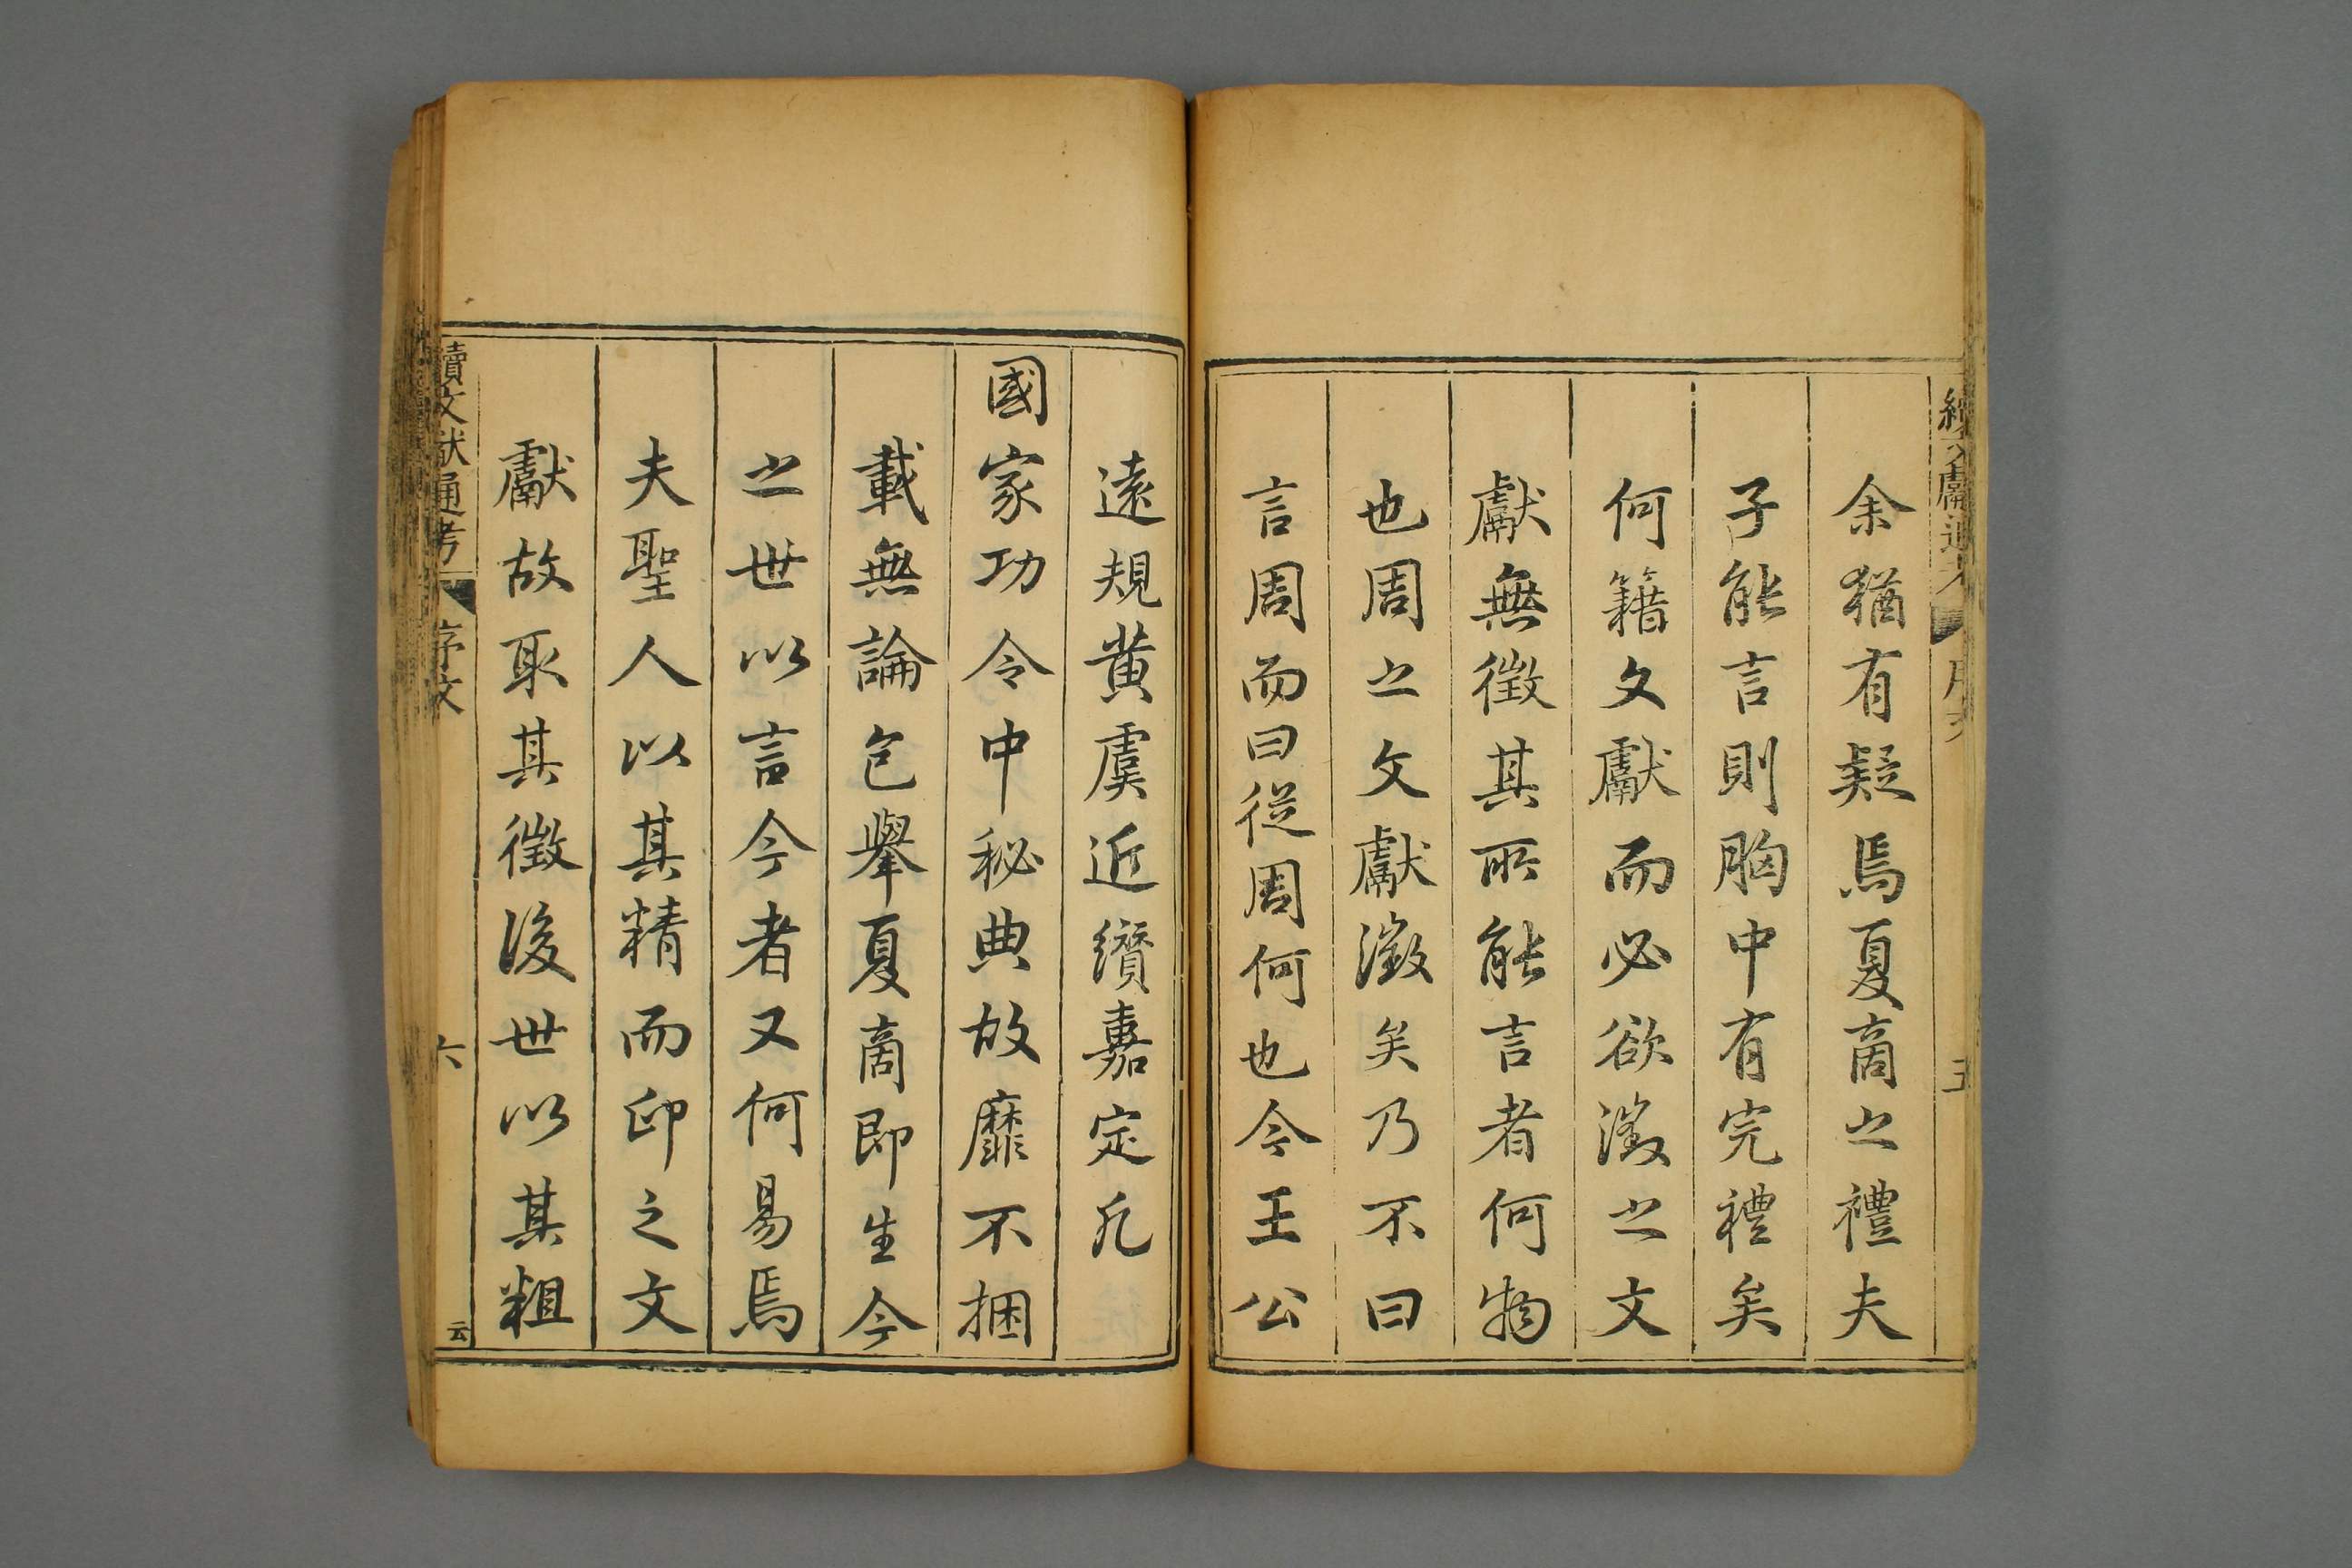 余猶有疑焉夏商之禮夫
子能言則胸中有完禮矣
何籍文獻而必欲徵之文
獻無徵其所能言者何物
也周之文獻徵矣乃不曰
言周而曰從周何也今王公
遠規黄虞近纘嘉定凡
國家功令中秘典故靡不捆
載無論包舉夏商即生今
之世以言今者又何易焉
夫聖人以其精而印之文
獻故取其徵後世以其粗
續文献通考
序文
六
云